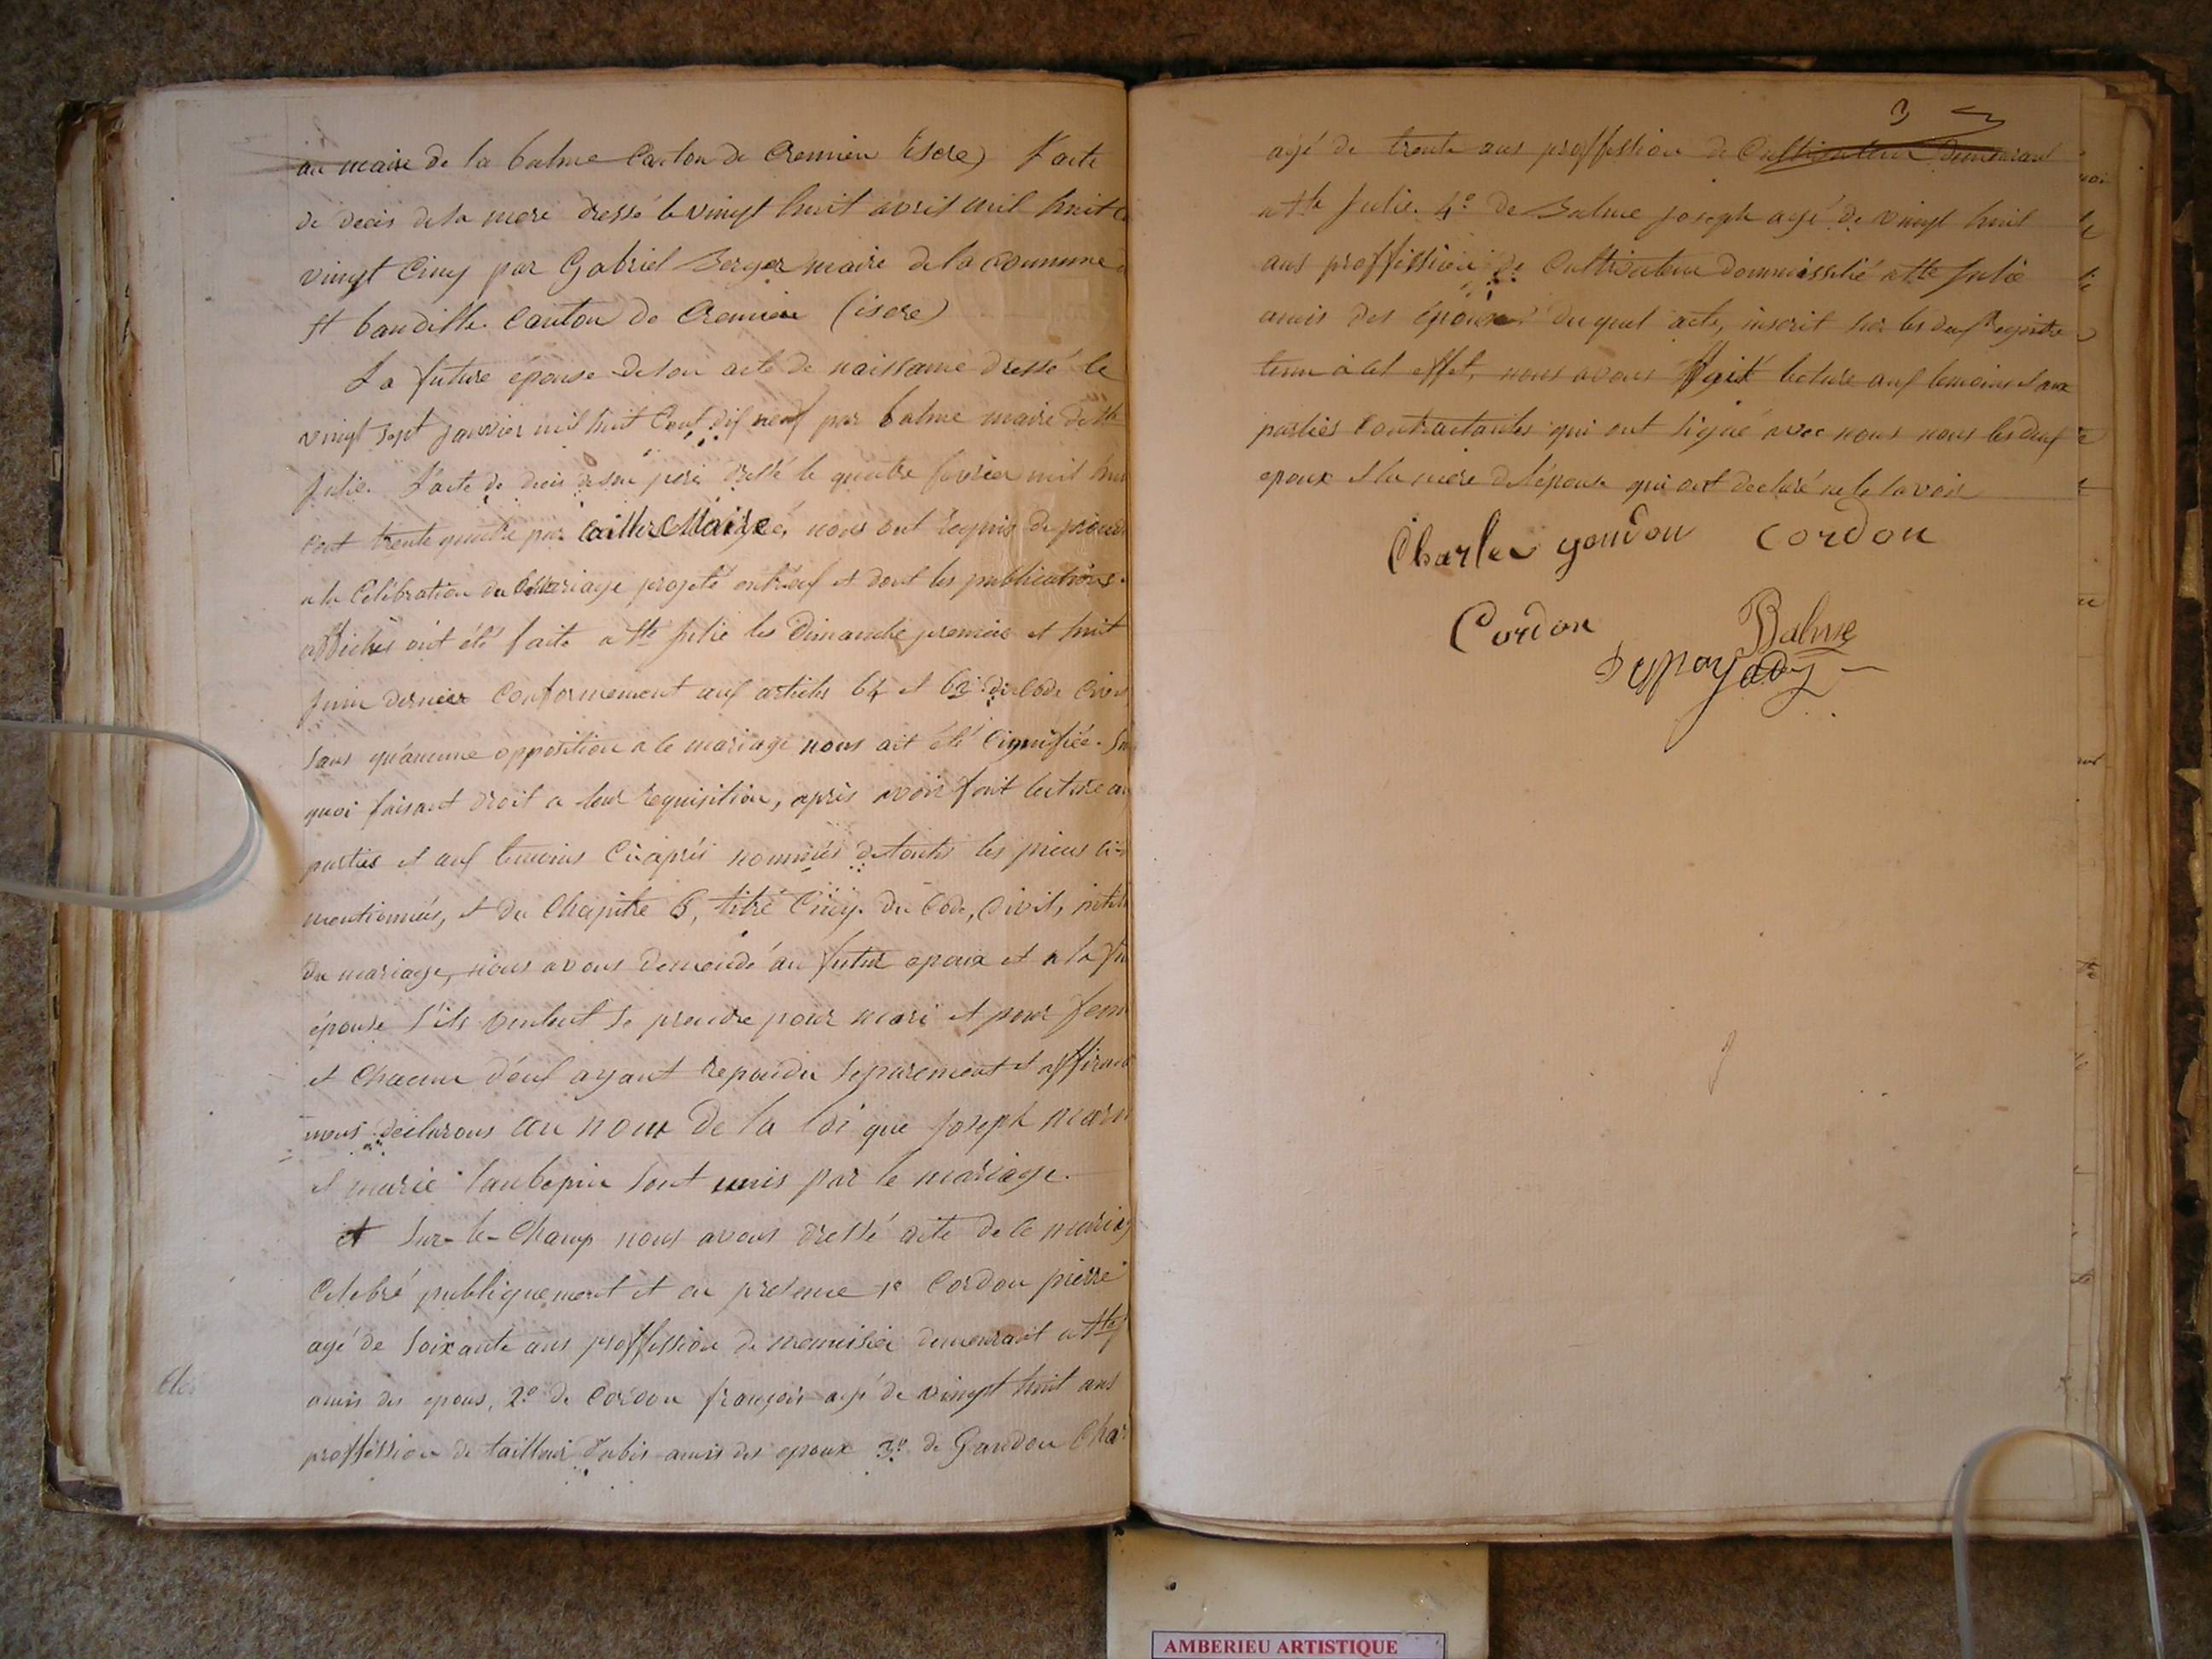 au maire de la balme Canton de Cremieu (isere) L'acte
de decès de la mere dressé le vingt huit avril mil huit
vingt Cinq par Gabriel Berger maire de la commune
St baudille Canton de Cremieu (isere)
La future épouse de son acte de naissance dressé le
vingt sept janvier mil huit Cent dix neuf par balme maire de Ste
Julie. L'acte de decès de son pere dressé le quatre fevrier mil
Cent trente quatre par nous ont requis de
a la Célébration du mariage projeté entreux et dont les publications
affiches ont été faite a Ste Julie les Dimanche premier et huit
juin dernier Conformement aux articles 64 et 63 du Code Civil
sans qu'aucune opposition a ce mariage nous ait été Cignifiée.
quoi faisant droit a leur requisition, après avoir fait lecture
parties et aux temoins Ci après nommés de toutes les pieces
mentionnés, et du Chapitre 6, titré Cinq. du Code, Civil, intit
du mariage, nous avons demendé au futur epoux et a la fu
épouse S'ils veulent se prendre pour mari et pour fem
et Chacun d'eux ayant repondu separement et affirma
nous declarons au nom De la loi que joseph marin
et marie laubepin sont unis par le mariage.
et Sur-le-Champ nous avons dressé acte de ce mariag
Celebré publiquement et en presence 1º Cordon pierre
agé de soixante ans proffession de menuisier demeurant a Ste J
amis des epoux, 2º de Cordon françois agé de vingt huit ans
proffession de tailleur d'abis amis des epoux 3º de Gandon Char
3
agé de trente ans proffession de Cultivateur demeurant
a Ste Julie. 4º de Balme joseph agé de vingt huit
ans proffession de Cultivateur dommissilié a Ste Julie
amis des épouse. duquel acte, inscrit sur les deux Registre
tenu à cet effet, nous avons fait lecture aux temoins et aux
parties Contractantes qui ont signé avec nous nous les deux
epoux et la mere de l'épouse qui ont declaré ne le savoir
Charles gondon Cordon
Cordon Balme
AMBERIEU ARTISTIQUE